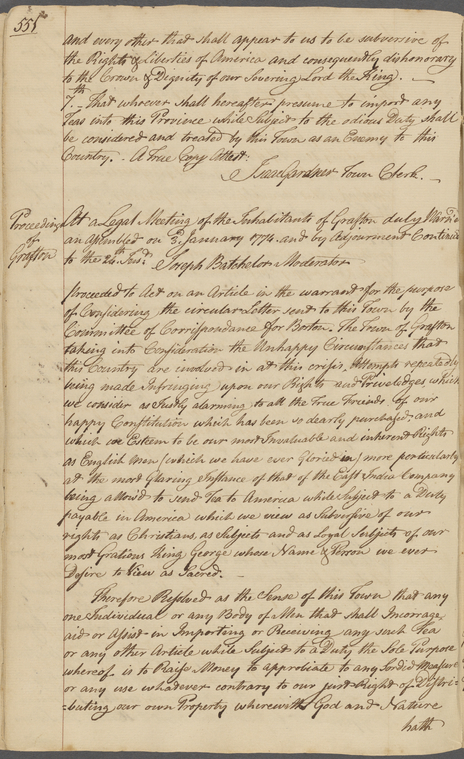 551
and every other that shall appear to us to be subversive of
the Rights & Liberties of America and consequently dishonorary
to the Crown & Dignity of our Sovering Lord the King. —
7.th That whoever shall hereafter presume to import any
Teas into this Province while Subject to the odious Duty shall
be considered and treated by this Town as an Enemy to this
Country. A True Copy Attest:
Isaac Gardner Town Clerk. —
Proceedings
of
Grafton
At a Legal Meeting of the Inhabitants of Grafton duly Warn'd
an assembled on 3. January 1774. and by Adjourment Continued
to the 24th Inst:
Joseph Batchelor Moderator
Proceeded to Act on an Article in the warrant for the purpose
of Considering the circular Letter sent to this Town by the
Committee of Corrispondance for Boston. The Town of Grafton
taking into Consideration the Unhappy Circumstances that
this Country are involved in at this crisis, Attempts repeatedly
being made Infringing upon our Rights and Priveledges which
we consider as Justly alarming to all the True Friends of our
happy Constitution which has been so dearly purchased, and
which we Esteem to be our most Invaluable and inherent Rights
as English Men (which we have ever Gloried in) more perticularly
at the most Glaring Instance of that of the East India Company
being allow'd to send Tea to America while Subject to a Duty
payable in America which we view as Subversive of our
rights as Christians, as Subjects and as Loyal Subjects of our
most Gratious King George whose Name & Person we ever
Desire to View as Sacred. —
Therefore Resolved as the Sense of this Town that any
one Individual or any Body of Men that shall Incorrage,
aid or Assist in Importing or Receiving any such Tea
or any other Article while Subject to a Duty the Sole Purpose
whereof is to Raise Money to approbiate to any Sordid Measure
or any use whatever contrary to our just Right of Distri=
=buting our own Property wherewith God and Nature
hath